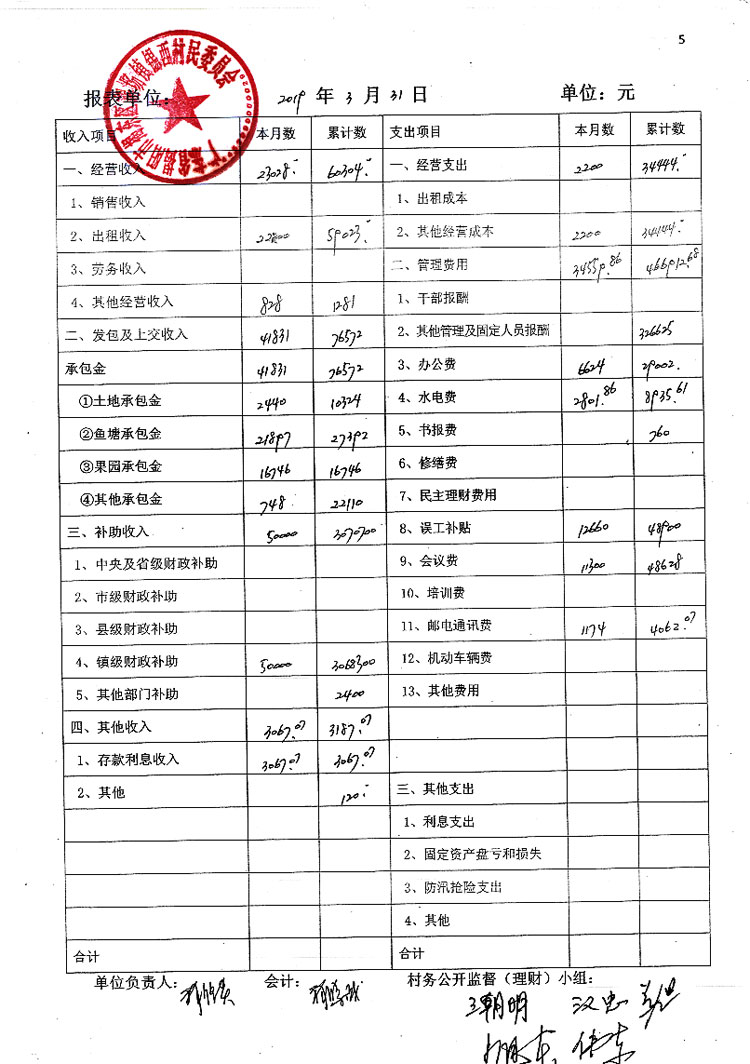 5
报表单位：
2019 年 3 月 31 日 单位：元
村民委员会
收入项目 本月数 累计数 支出项目 本月数 累计数
一、经营收入 23028.- 60304.- 一、经营支出 2200 34444.-
1、销售收入 1、出租成本
2、出租收入 22200 59023.- 2、其他经营成本 2200 34444.-
3、劳务收入 二、管理费用 34559.86 466912.68
4、其他经营收入 828 1281 1、干部报酬
二、发包及上交收入 41831 76572 2、其他管理及固定人员报酬 326625
承包金 41831 76572 3、办公费 6624 29002.
①土地承包金 2440 10324 4、水电费 2801.86 8935.61
②鱼塘承包金 21897 27392 5、书报费 760
③果园承包金 16746 16746 6、修缮费
④其他承包金 748 22110 7、民主理财费用
三、补助收入 50000 3070700 8、误工补贴 12660 48900
1、中央及省级财政补助 9、会议费 11300 48628
2、市级财政补助 10、培训费
3、县级财政补助 11、邮电通讯费 1174 4062.07
4、镇级财政补助 50000 3068300 12、机动车辆费
5、其他部门补助 2400 13、其他费用
四、其他收入 3067.07 3187.07
1、存款利息收入 3067.07 3067.07
2、其他 120.- 三、其他支出
1、利息支出
2、固定资产盘亏和损失
3、防汛抢险支出
4、其他
合计 合计
单位负责人： 会计： 村务公开监督（理财）小组：